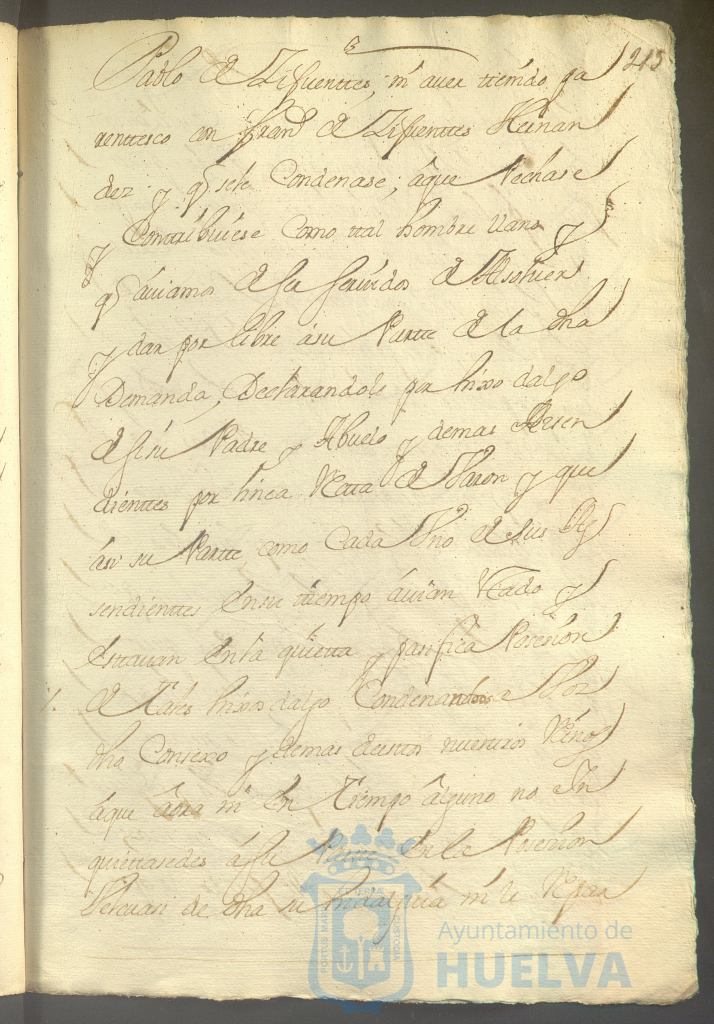 215
Pablo de Zifuenttes, ni aver tienido pa
renttesco con Fran.co de Zifuenttes Hernan
dez y q.e se le Condenase, áque Pechase
y Conttribuiese como ttal hombre llano y
q.e aviamos de ser servidos de Absolver
y dar por libre á su Partte de la dha
Demanda, Declarandole por hixo dalgo
de si su Padre y Abuelo y demas Asen
dienttes por linea Recta de Varon y que
ási su Partte como Cada Uno de sus As
sendienttes en su tiempo avian estado y
esttavan en la quietta y pasifica Posesion
de tales hixos dalgo Condenandoos a Vos
dho Consexo y demas destos nuestros Reinos
áque áora ni en Tiempo álguno no In
quiettasedes á su Partte en la Posesion
de dha su hidalguia ni le
PORTUS MARIS
ET TERRAE
CUSTODIA
Ayuntamiento de
HUELVA